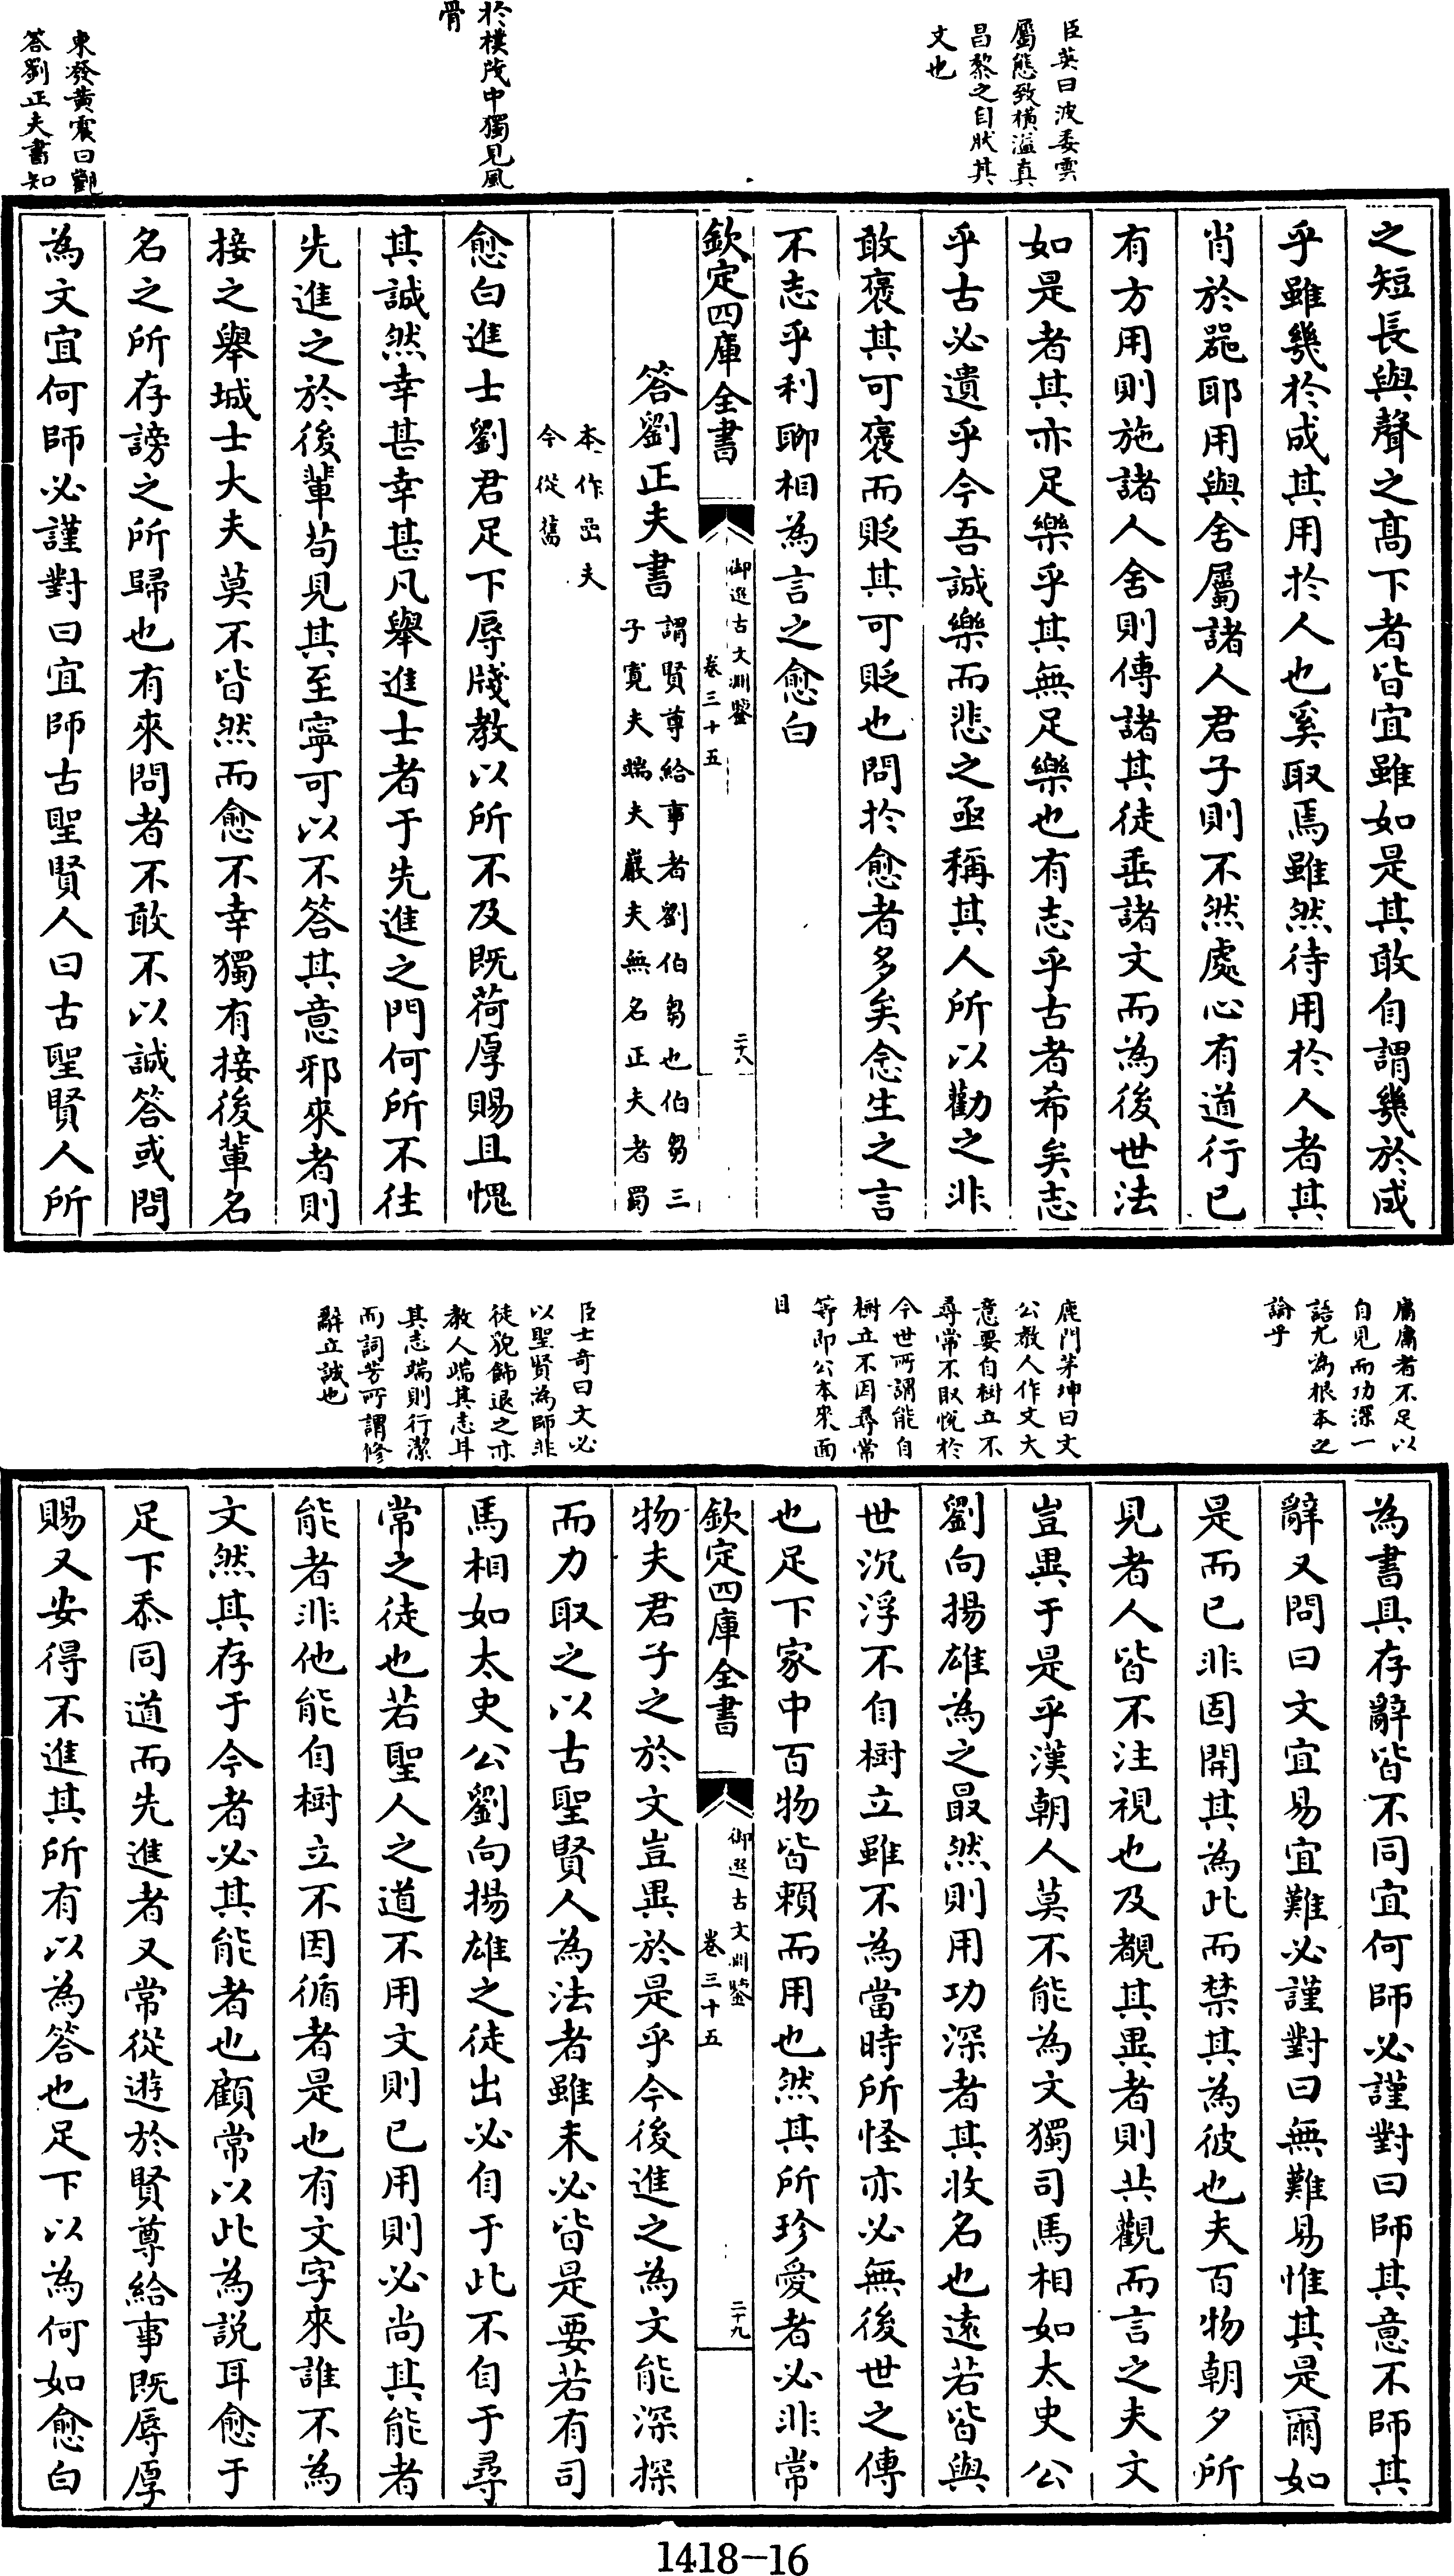 臣英曰波委雲
屬態致橫溢真
昌黎之自狀其
文也
於樸茂中獨見風
骨
東發黃震曰觀
答劉正夫書知
之短長與聲之髙下者皆宜雖如是其敢自謂幾於成
乎雖幾於成其用於人也奚取焉雖然待用於人者其
肖於器耶用與舍屬諸人君子則不然處心有道行已
有方用則施諸人舍則傳諸其徒垂諸文而為後世法
如是者其亦足樂乎其無足樂也有志乎古者希矣志
乎古必遺乎今吾誠樂而悲之亟稱其人所以勸之非
敢褒其可褒而貶其可貶也問於愈者多矣念生之言
不志乎利聊相為言之愈白
欽定四庫全書
御選古文淵鑒
卷三十五
二十八
答劉正夫書
謂賢尊給事者劉伯芻也伯芻三
子寬夫端夫巖夫無名正夫者蜀
本作嵒夫
今從舊
愈白進士劉君足下辱牋教以所不及既荷厚賜且愧
其誠然幸甚幸甚凡舉進士者于先進之門何所不往
先進之於後輩茍見其至寧可以不答其意邪來者則
接之舉城士大夫莫不皆然而愈不幸獨有接後輩名
名之所存謗之所歸也有來問者不敢不以誠答或問
為文宜何師必謹對曰宜師古聖賢人曰古聖賢人所
庸庸者不足以
自見而功深一
語尤為根本之
論乎
鹿門茅坤曰文
公教人作文大
意要自樹立不
尋常不取悅於
今世所謂能自
樹立不因尋常
等即公本來面
目
臣士奇曰文必
以聖賢為師非
徒貌飾退之亦
教人端其志耳
其志端則行潔
而詞芳所謂修
辭立誠也
為書具存辭皆不同宜何師必謹對曰師其意不師其
辭又問曰文宜易宜難必謹對曰無難易惟其是爾如
是而已非固開其為此而禁其為彼也夫百物朝夕所
見者人皆不注視也及覩其異者則共觀而言之夫文
豈異于是乎漢朝人莫不能為文獨司馬相如太史公
劉向揚雄為之最然則用功深者其收名也遠若皆與
世沉浮不自樹立雖不為當時所怪亦必無後世之傳
也足下家中百物皆賴而用也然其所珍愛者必非常
欽定四庫全書
御選古文淵鑒
卷三十五
二十九
物夫君子之於文豈異於是乎今後進之為文能深探
而力取之以古聖賢人為法者雖未必皆是要若有司
馬相如太史公劉向揚雄之徒出必自于此不自于尋
常之徒也若聖人之道不用文則已用則必尚其能者
能者非他能自樹立不因循者是也有文字來誰不為
文然其存于今者必其能者也顧常以此為説耳愈于
足下忝同道而先進者又常從遊於賢尊給事既辱厚
賜又安得不進其所有以為答也足下以為何如愈白
1418-16